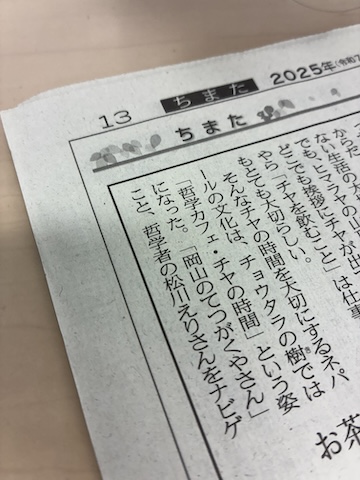 13 ちまた 2025年(令和7
ちまた
から
ない生活の
でも、ヒマラヤの山
どこでも挨拶にチャが出
やら「チャを飲むこと」は仕事
もとても大切らしい。
そんなチャの時間を大切にするネパ
ールの文化は、チョウタラの樹では
「哲学カフェ・チャの時間」という姿
になった。「岡山のてつがくやさん」
こと、哲学者の松川えりさんをナビゲ
お茶